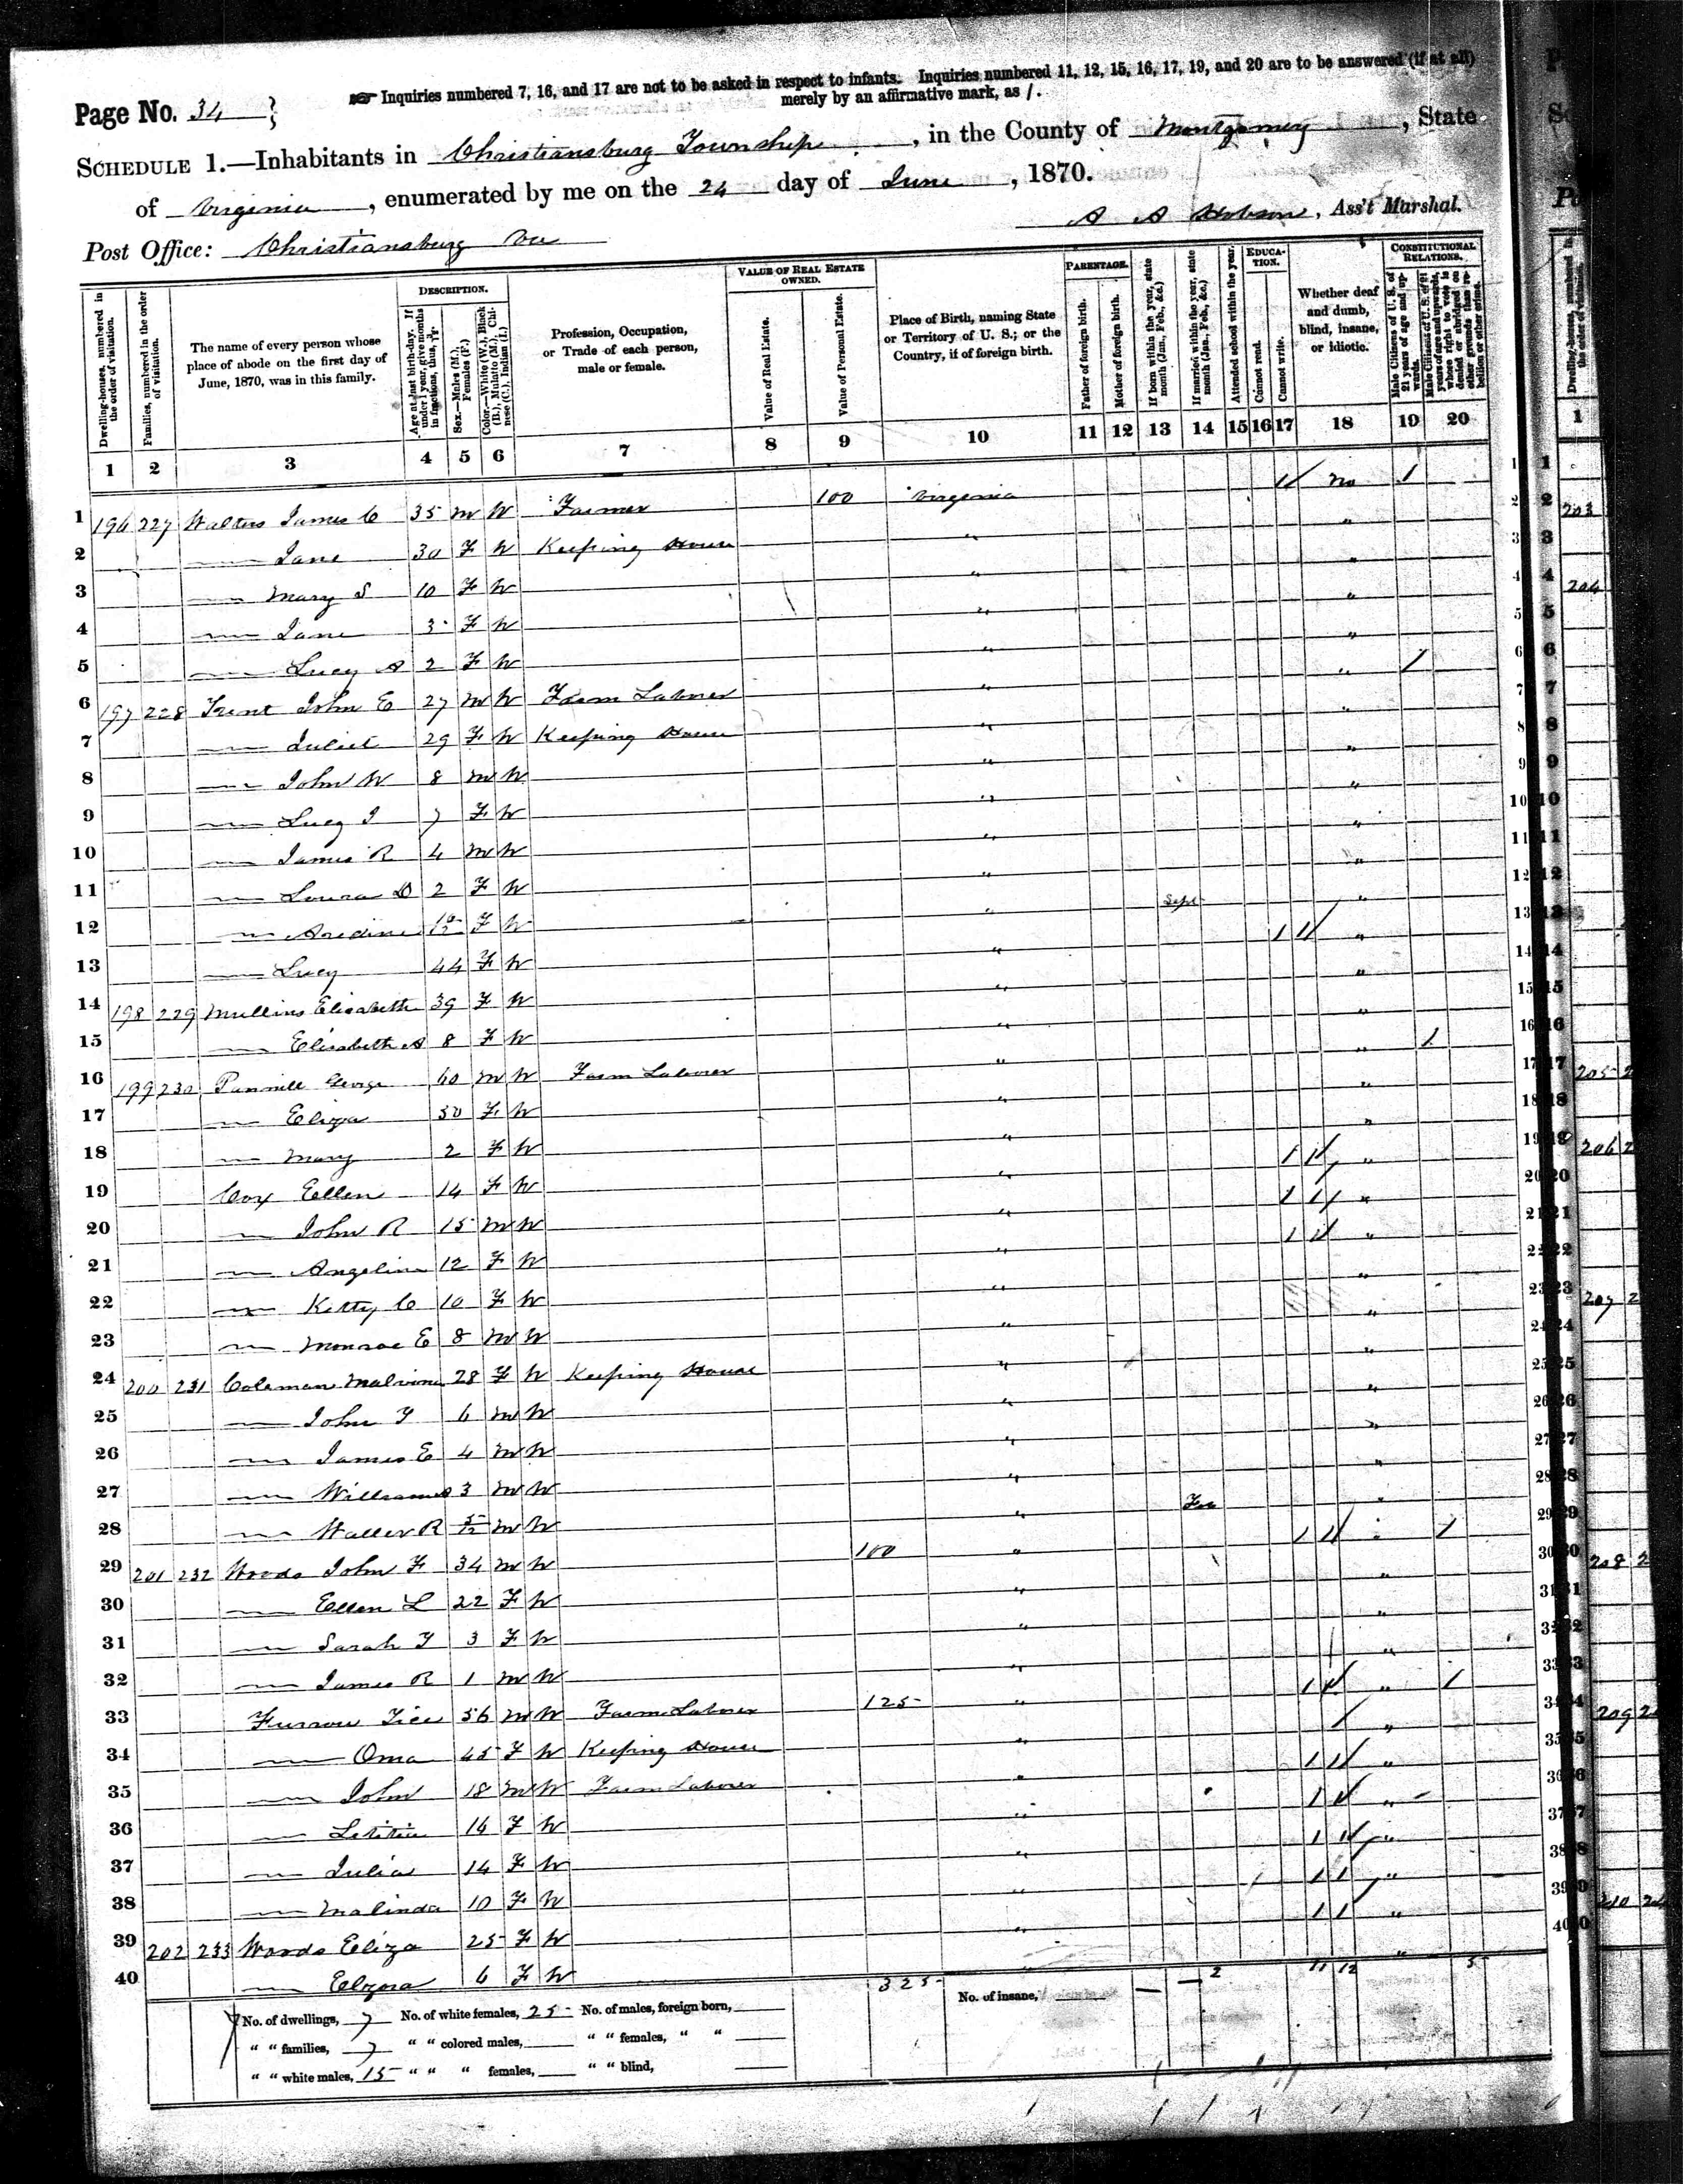 Page No. 34
Inquiries numbered 7, 16, and 17 are not to be asked in respect to infants. Inquiries numbered 11, 12, 15, 16, 17, 19, and 20 are to be answered (if at all)
merely by an affirmative mark, as /.
SCHEDULE 1.—Inhabitants in Christiansburg Township, in the County of Montgomery, State
of Virginia, enumerated by me on the 24 day of June, 1870.
Post Office: Christiansburg Va
A A Hobson, Ass't Marshal.
Dwelling-houses, numbered in the order of visitation.
Families, numbered in the order of visitation.
The name of every person whose place of abode on the first day of June, 1870, was in this family.
DESCRIPTION.
Age at last birth-day. If under 1 year, give months in fractions, thus,
Sex.—Males (M.), Females (F.)
Color.—White (W.), Black (B.), Mulatto (M.), Chinese (C.), Indian (I.)
Profession, Occupation, or Trade of each person, male or female.
VALUE OF REAL ESTATE OWNED.
Value of Real Estate.
Value of Personal Estate.
Place of Birth, naming State or Territory of U. S.; or the Country, if of foreign birth.
PARENTAGE.
Father of foreign birth.
Mother of foreign birth.
If born within the year, state month (Jan., Feb., &c.)
If married within the year, state month (Jan., Feb., &c.)
EDUCATION.
Attended school within the year.
Cannot read.
Cannot write.
Whether deaf and dumb, blind, insane, or idiotic.
CONSTITUTIONAL RELATIONS.
Male Citizens of U. S. of 21 years of age and upwards.
Male Citizens of U. S. of 21 years of age and upwards, whose right to vote is denied or abridged on other grounds than rebellion or other crime.
1 2 3 4 5 6 7 8 9 10 11 12 13 14 15 16 17 18 19 20
1 196 227 Walters James C 35 M W Farmer 100 Virginia / no /
2 — Jane 30 F W Keeping House " "
3 — Mary S 10 F W " "
4 — Jane 3 F W " "
5 — Lucy A 2 F W " "
6 197 228 Trent John E 27 M W Farm Laborer " " /
7 — Juliet 29 F W Keeping House " "
8 — John W 8 M W " "
9 — Lucy J 7 F W " "
10 — James R 4 M W " "
11 — Loura D 2 F W " "
12 — F W " Sept "
13 — Lucy 44 F W " / / "
14 198 229 Mullins Elisabeth 39 F W " "
15 — Elisabeth A 8 F W " "
16 199 230 George 60 M W Farm Laborer " " /
17 — Eliza 50 F W " "
18 — Mary 2 F W " "
19 Cox Ellen 14 F W " / / "
20 — John R 15 M W " / / "
21 — Angeline 12 F W " / / "
22 — Kitty C 10 F W " "
23 — Monroe E 8 M W " "
24 200 231 Coleman Malvina 28 F W Keeping House " "
25 — John T 6 M W " "
26 — James E 4 M W " "
27 — William 3 M W " "
28 — Waller R 5/12 M W " "
29 201 232 Woods John F 34 M W 100 " / / " /
30 — Ellen L 22 F W " "
31 — Sarah T 3 F W " "
32 — James R 1 M W " "
33 Furrow Tice 56 M W Farm Laborer 125 " / / " /
34 — Oma 45 F W Keeping House " / "
35 — John 18 M W Farm Laborer " / / "
36 — Letitia 16 F W " / / "
37 — Julia 14 F W " / / "
38 — Malinda 10 F W " / / "
39 202 233 Woods Eliza 25 F W " / / "
40 — Elzora 6 F W " "
325 2 11 12 5
No. of dwellings, 7 No. of white females, 25 No. of males, foreign born,
" " families, 7 " " colored males, " " females, " "
" " white males, 15 " " " females, " " blind,
No. of insane,
1
203
204
205
206
207
208
209
210